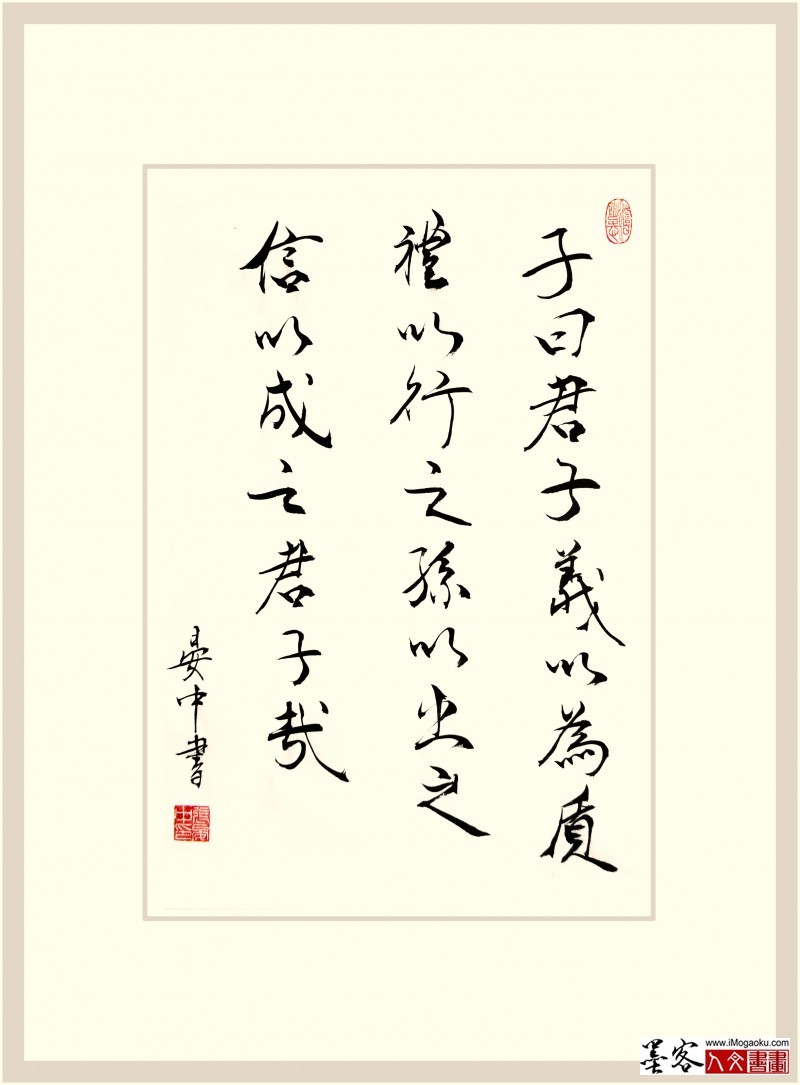 子曰君子義以為質
禮以行之孫以出之
信以成之君子哉
晏中書
墨客
www.iMogaoku.com
人文書畫